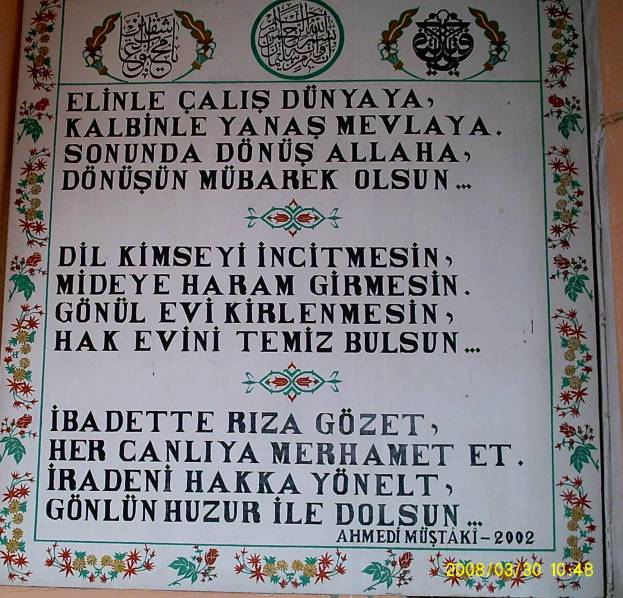 ELİNLE ÇALIŞ DÜNYAYA,
KALBİNLE YANAŞ MEVLAYA.
SONUNDA DÖNÜŞ ALLAHA,
DÖNÜŞÜN MÜBAREK OLSUN...
DİL KİMSEYİ İNCİTMESİN,
MİDEYE HARAM GİRMESİN.
GÖNÜL EVİ KİRLENMESİN,
HAK EVİNİ TEMİZ BULSUN...
İBADETTE RIZA GÖZET,
HER CANLIYA MERHAMET ET.
İRADENİ HAKKA YÖNELT,
GÖNLÜN HUZUR İLE DOLSUN...
AHMEDİ MÜŞTAKİ-2002
2008/03/30 10:48